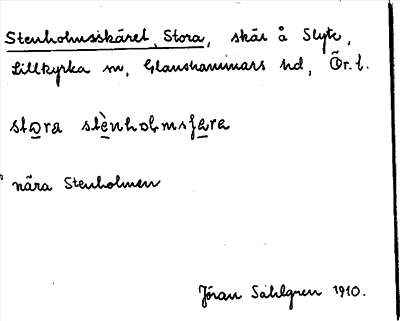 Stenholmsskäret, Stora, skär å Slyte,
Lillkyrka sn, Glanshammars hd, Ör. l.
stora stènholmsʃæra
nära Stenholmen
Jöran Sahlgren 1910.